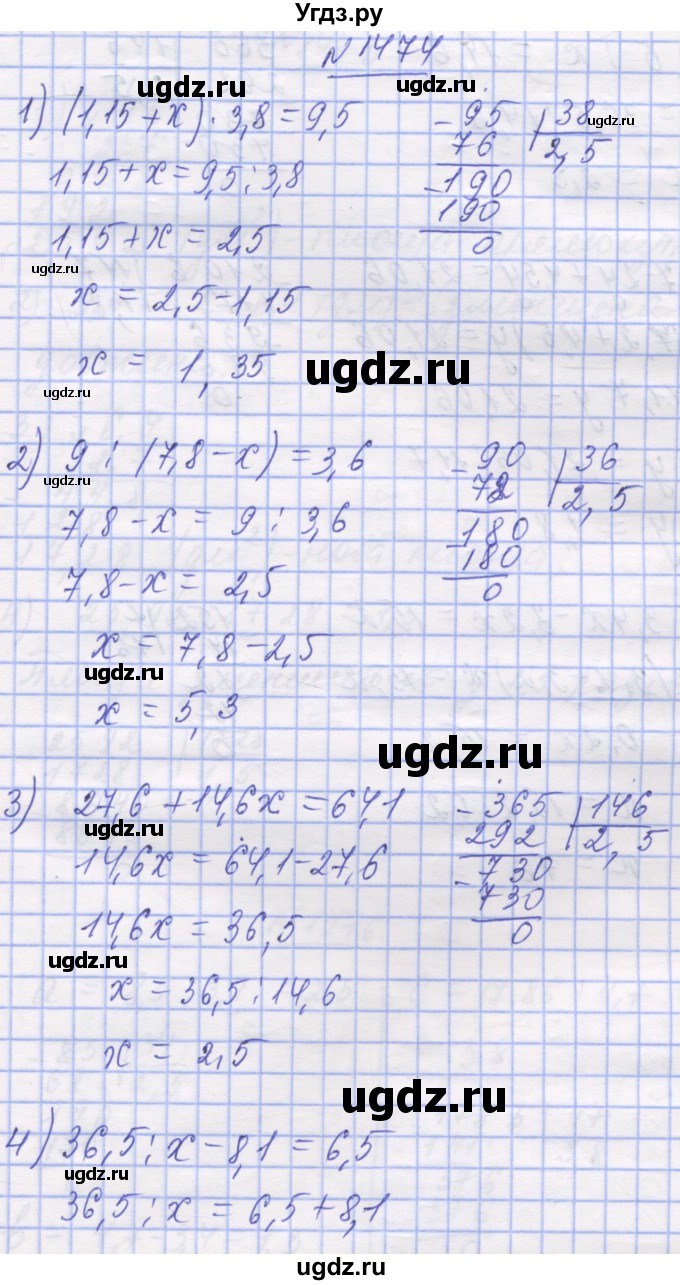 Угдз.ру
N 1474
ugdz.ru ugdz.ru
1) (1,15 + x) · 3,8 = 9,5
- 95 | 38
ugdz.ru
76 2,5
1,15 + x = 9,5 : 3,8
- 190
190
0
1,15 + x = 2,5
ugdz.ru
x = 2,5 - 1,15
x = 1,35
ugdz.ru
ugdz.ru
2) 9 : (7,8 - x) = 3,6
- 90 | 36
72 2,5
ugdz.ru
7,8 - x = 9 : 3,6
- 180
180
0
7,8 - x = 2,5
x = 7,8 - 2,5
ugdz.ru
x = 5,3
ugdz.ru
3) 27,6 + 14,6x = 64,1
- 365 | 146
292 2,5
ugdz.ru
14,6x = 64,1 - 27,6
- 730
730
0
14,6x = 36,5
ugdz.ru
x = 36,5 : 14,6
x = 2,5
ugdz.ru
4) 36,5 : x - 8,1 = 6,5
ugdz.ru
36,5 : x = 6,5 + 8,1
ugdz.ru